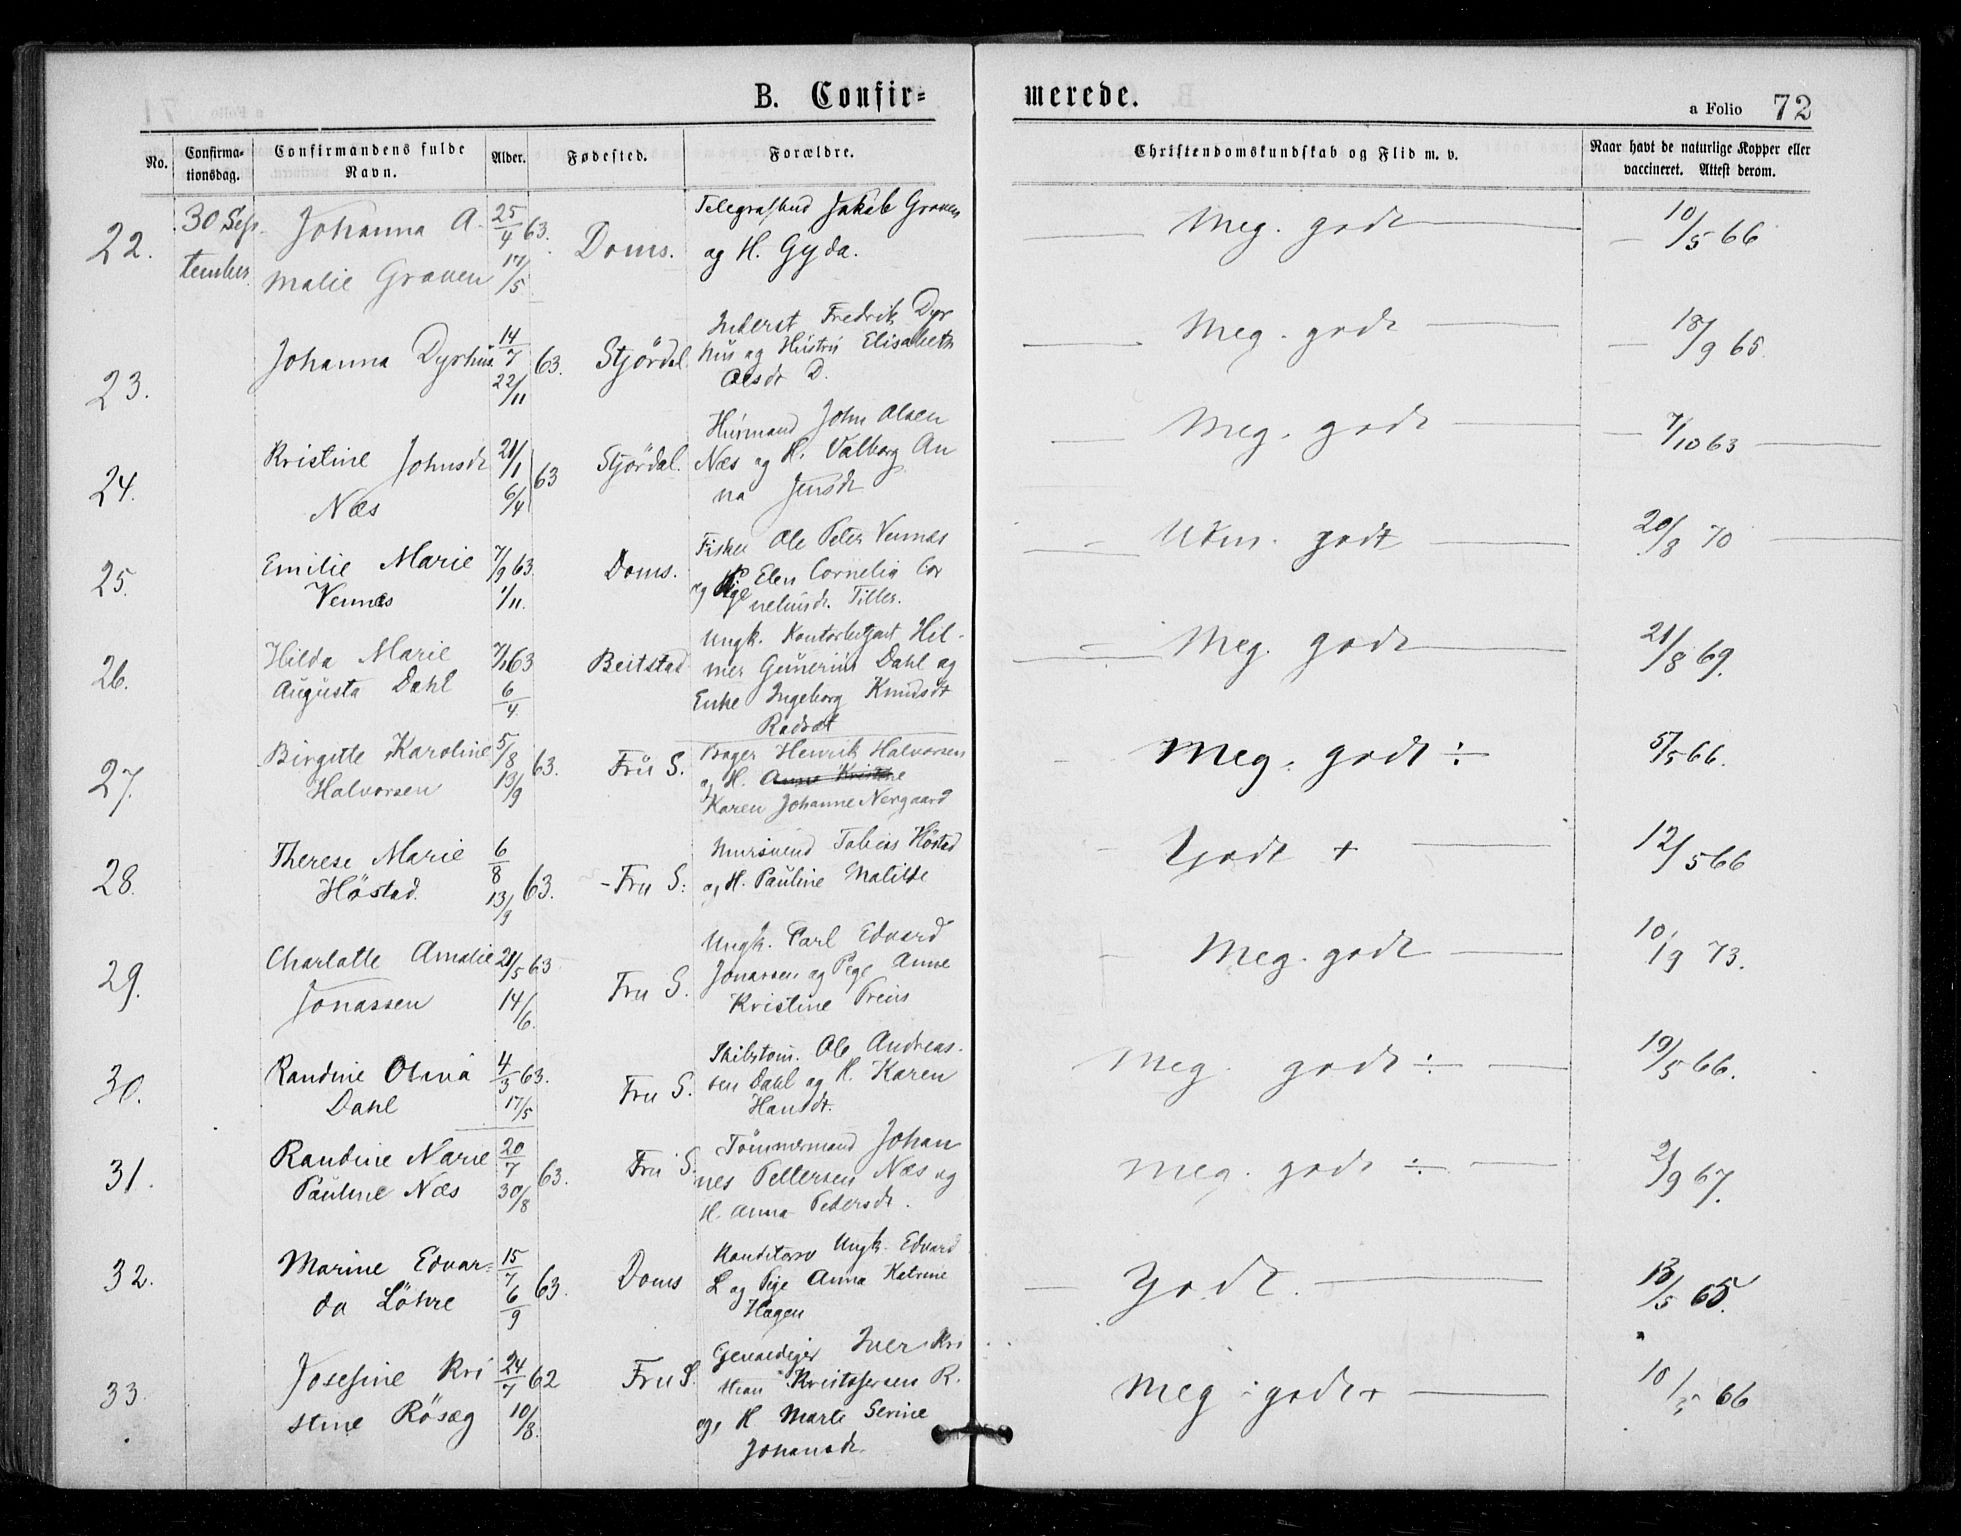 B. Confir=
merede.
a Folio 72
No. Confirma-tionsdag. Confirmandens fulde Navn. Alder. Fødested. Forældre. Christendomskundskab og Flid m. v. Naar havt de naturlige Kopper eller vaccineret. Attest derom.
22. 30 Sep- Johanna A- 25/4 63. Doms. Telegrafbud Jakob Graven Meg. godt 10/5 66
tember malie Graven 17/5 og H. Gyda.
Inderst Fredrik Dyr
23. Johanna Dyrhus. 14/7 63. Stjørdal hus og Hustru Elisabeth Meg. godt 18/9 65.
22/11 Olsdt D.
Husmand John Olsen
24. Kristine Johnsdt 21/1 63 Stjørdal. Næs og H. Valborg An Meg. godt 7/10 63
Næs 6/4 na Jensdt
Fisker Ole Peter Vennes
25. Emilie Marie 7/9 63. Doms. og Pige Elen Cornelia Cor Udm. godt 20/8 70
Vennes 1/11. neliusdt. Tiller.
Ungk. Kontorbetjent Hil-
26. Hilda Marie 7/1 63 Beitstad mer Dahl og Meg. godt 21/8 69.
Augusta Dahl 6/4 Enke Ingeborg Knudsdt
27. Birgitte Karoline 5/8 63. Fru S. Bager Henrik Halvorsen Meg. godt ÷ 5/5 66.
Halvorsen 13/9 og H. Anne Kristine
Karen Johanne Nergaard
28. Therese Marie 6/8 63. Fru S. Mursvend Tobias Høstad Godt + 12/5 66
Høstad. 13/9 og H. Pauline Matilde
Ungk. Carl Edvard
29. Charlotte Amalie 21/5 63 Fru S. Jonassen og Pige Anne Meg. godt 10/9 73.
Jonassen 14/6. Kristine
Ole Andreas-
30. Randine Olava 4/3 63. Fru S. sen Dahl og H. Karen Meg. godt ÷ 19/5 66.
Dahl 17/5 Hansdt.
31. Randine Marie 20/7 63. Fru S. Tömmermand Johan Meg. godt ÷ 2/9 67.
Pauline Næs 30/8 nes Pettersen Næs og
H. Anna Pedersdt.
32. Marine Edvar= 15/7 63. Doms Ungk. Edvard Godt. 13/5 65.
da Löhre 6/9 L og Pige Anna Katrine
Hagen
33. Josefine Kri 24/7 62 Fru S. Iver Kri Meg. godt + 10/5 66
stine Rösæg 10/8. stian Kristofersen R.
og H Marte Serine
Johansdt.